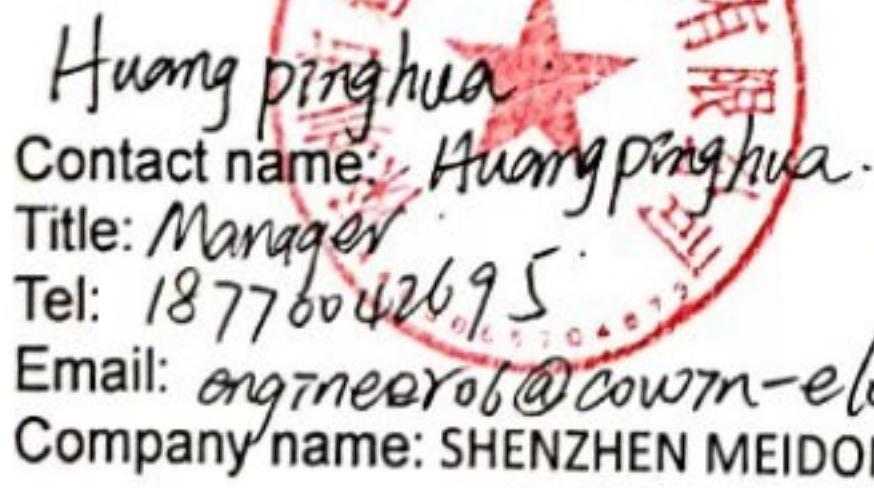 Huang pinghua
Contact name: Huang pinghua.
Title: Manager
Tel: 18770042695
Email: engineer06@cowin-el
Company name: SHENZHEN MEIDO
有限公司